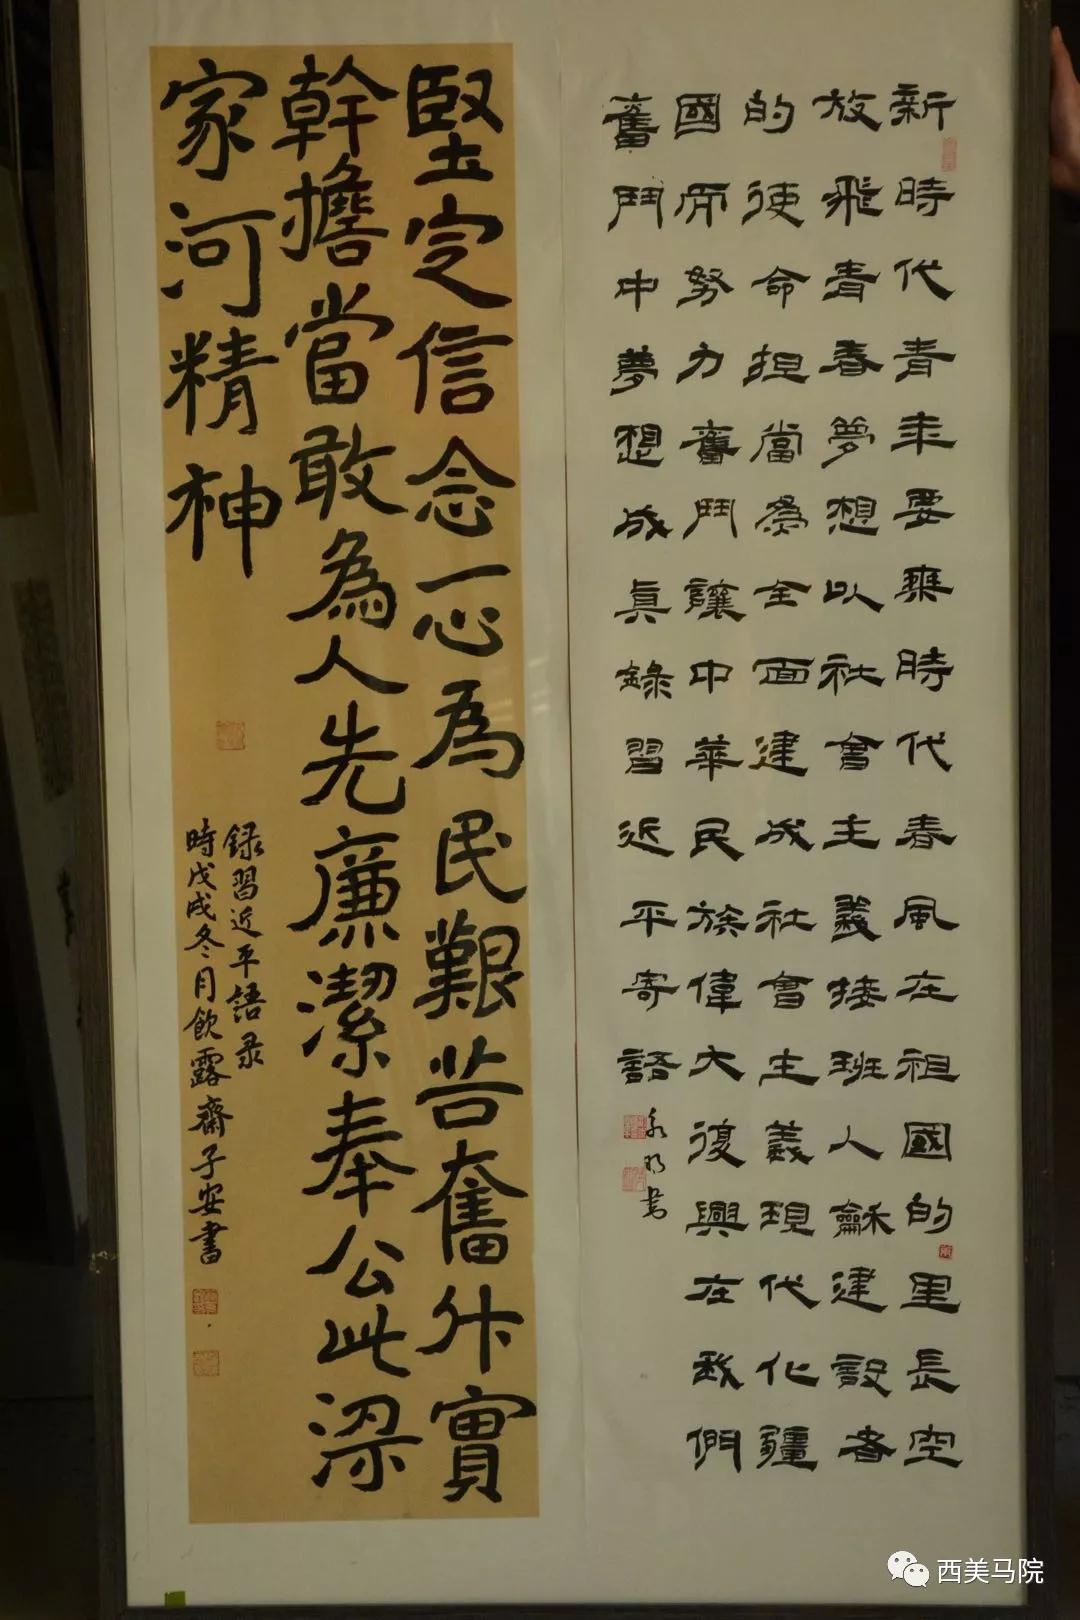 新時代青年要乘時代春風在祖國的里長空
放飛青春夢想以社會主義接班人龢建設者
的使命担當為全面建成社會主義現代化疆
國而努力奮鬥讓中華民族偉大復興在我們
奮鬥中夢想成真錄習近平寄語
永明書
堅定信念一心為民艱苦奮斗實
幹擔當敢為人先廉潔奉公此梁
家河精神
録習近平語录
時戊戌冬月飲露齋子安書
西美马院